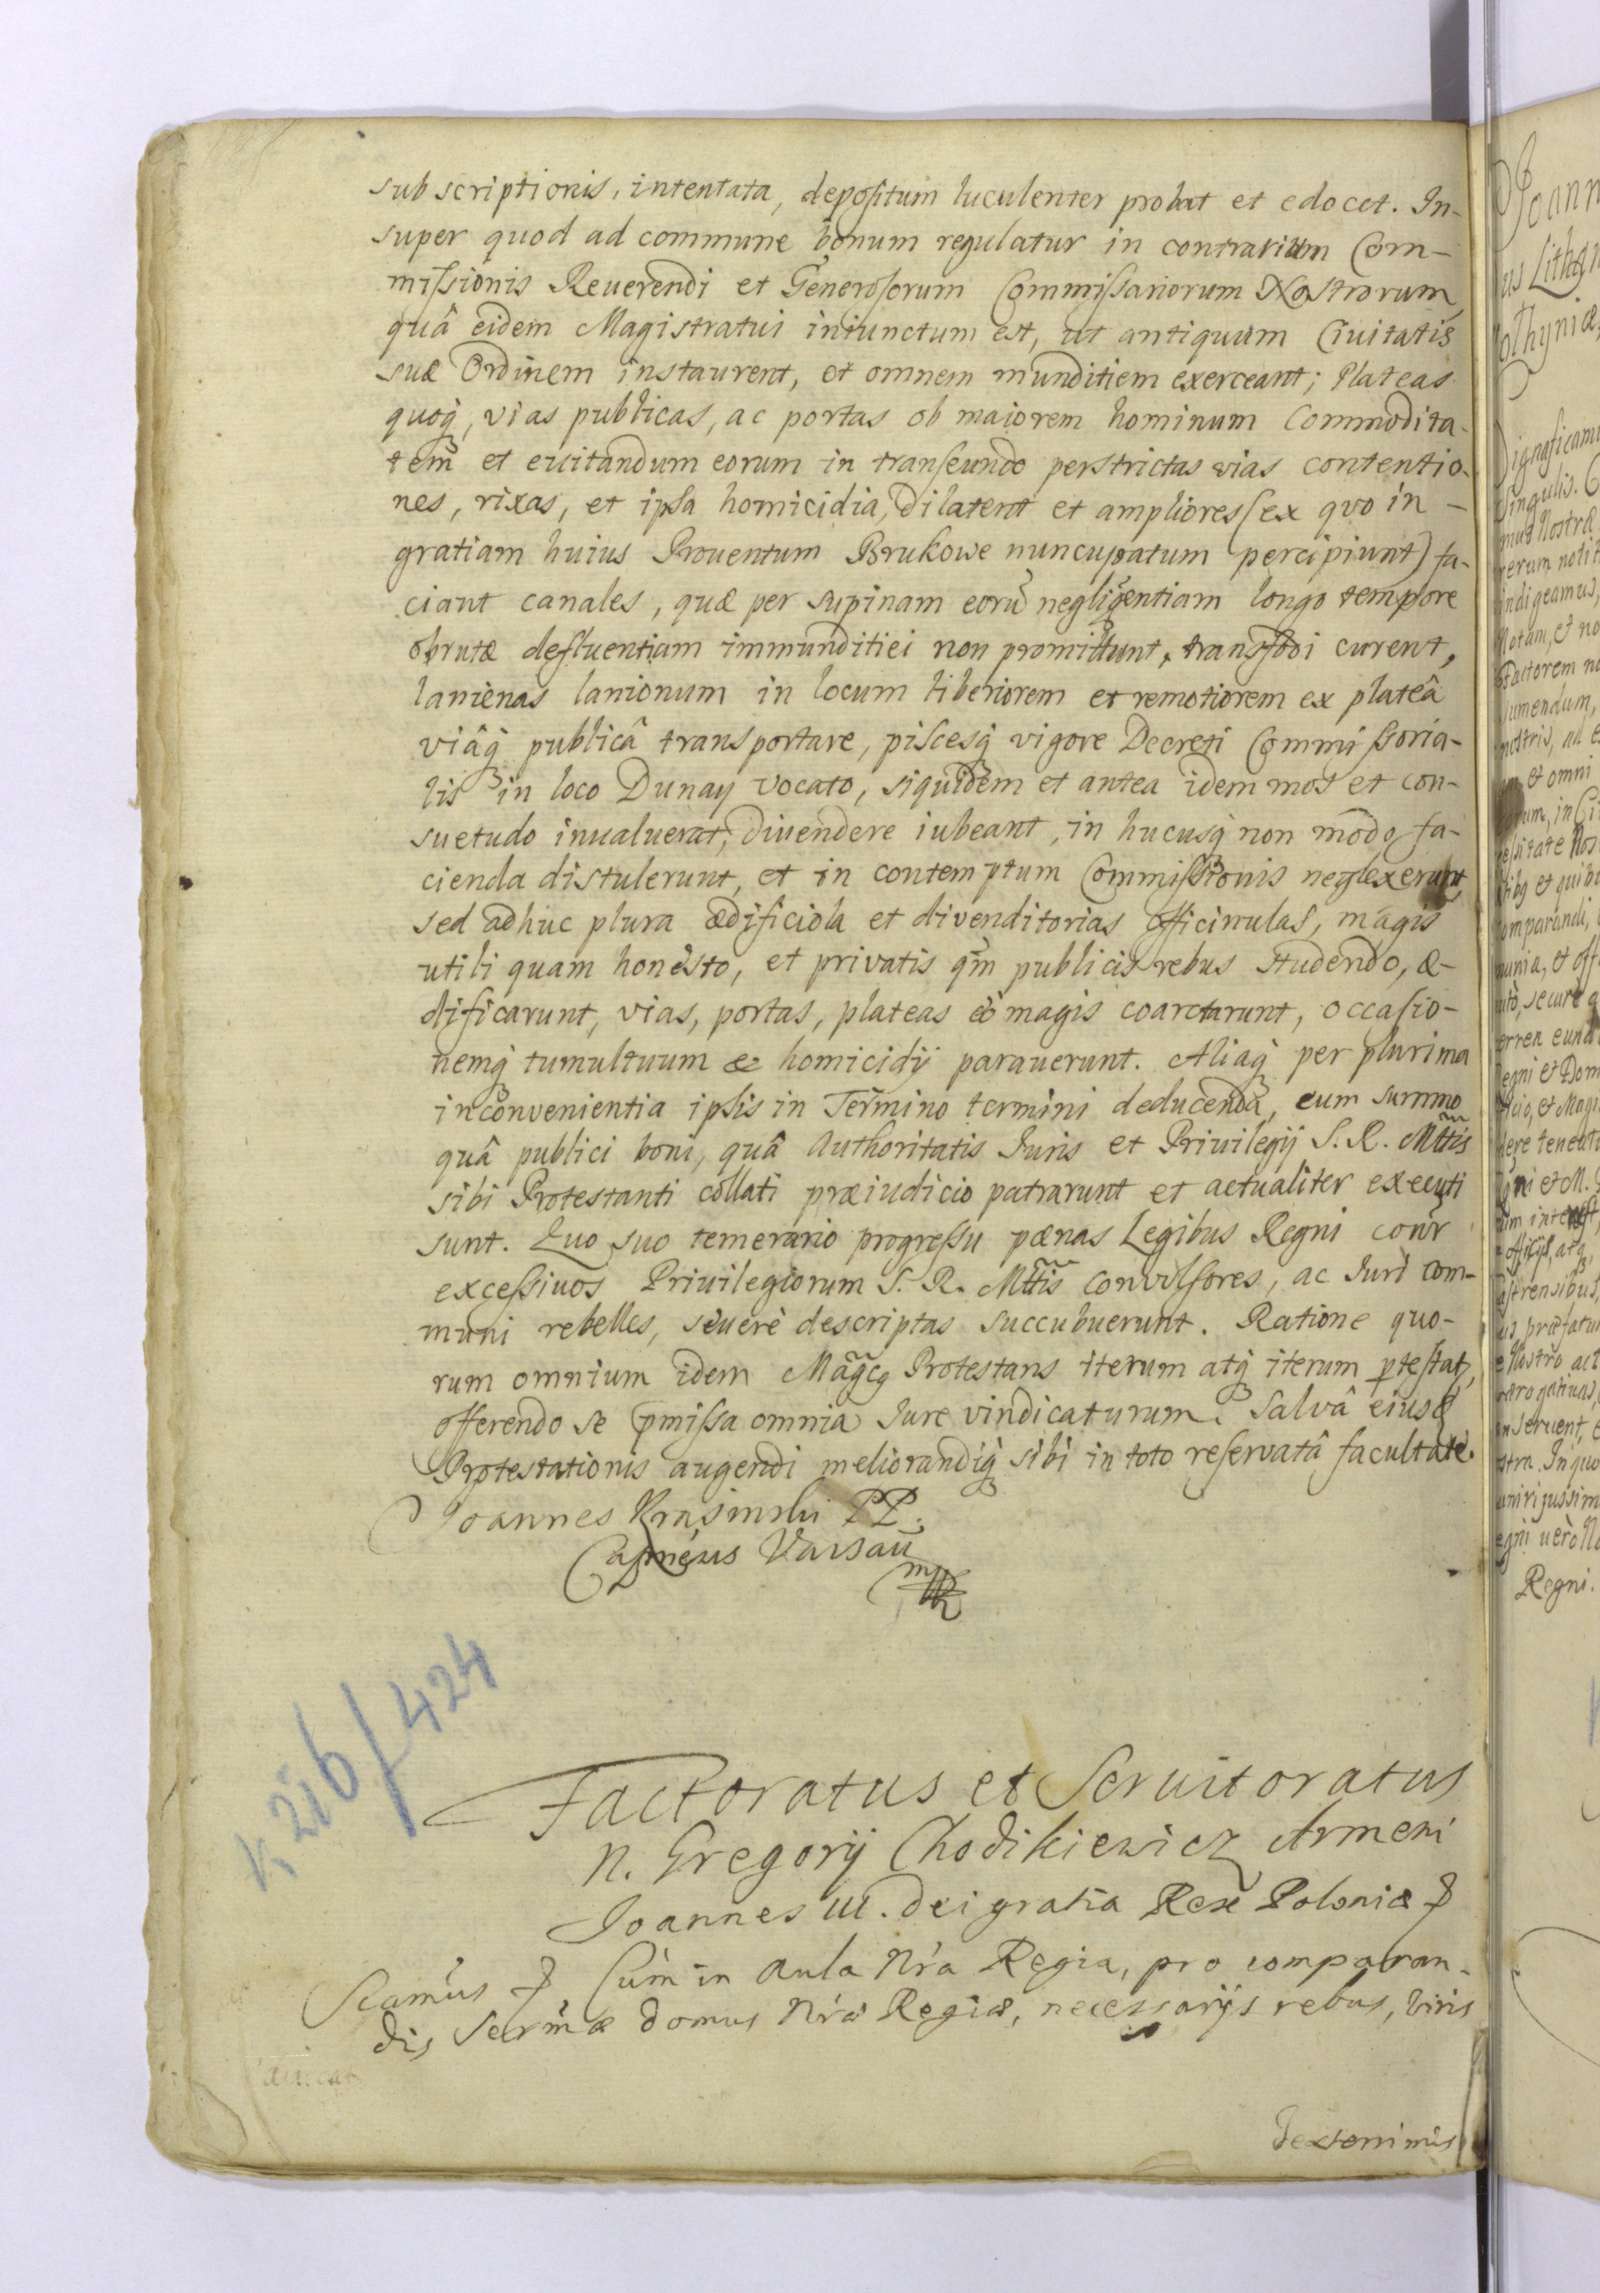 subscriptionis, intentata, depositum luculenter probat et edocet. In-
super quod ad commune bonum regulatur in contrarium Com-
missionis Reuerendi et Generosorum Commissariorum Nostrorum,
quâ eidem Magistratui iniunctum est, ut antiquum Ciuitatis
suæ Ordinem instaurent, et omnem munditiem exerceant; Plateas
quoq, vias publicas, ac portas ob maiorem hominum Commodita-
tem et euitandum eorum in transeundo perstrictas vias contentio-
nes, rixas, et ipsa homicidia, dilatent et ampliores (ex quo in-
gratiam huius Prouentum Brukowe nuncupatum percipiunt) fa-
ciant canales, quæ per supinam eorũ negligentiam longo tempore
obrutæ defluentiam immunditiei non promittunt, transfodi curent,
lanienas lanionum in locum liberiorem et remotiorem ex plateâ
viâq publicâ transportare, piscesq vigore Decreti Commissoria-
lis in loco Dunay vocato, siquidem et antea idem mos et con-
suetudo inualuerat, diuendere iubeant, in hucusq non modo fa-
cienda distulerunt, et in contemptum Commissionis neglexerunt,
sed adhuc plura ædificiola et divenditorias officinulas, magis
utili quam honesto, et privatis qm̃ publicis rebus studendo, æ-
dificarunt, vias, portas, plateas eò magis coarctarunt, occasio-
nemq tumultuum & homicidij parauerunt. Aliaq per plurima
inconvenientia ipsis in Termino termini deducenda, cum summo
quâ publici boni, quâ Authoritatis Iuris et Priuilegij S. R. Mttis
sibi Protestanti collati præiudicio patrarunt et actualiter executi
sunt. Quo suo temerario progressu pænas Legibus Regni contr
excessiuos Priuilegiorum S. R. Mttis convulsores, ac Iuri com-
muni rebelles, seuerè descriptas succubuerunt. Ratione quo-
rum omnium idem Magcq Protestans iterum atq iterum ptestat,
offerendo se pmissa omnia Iure vindicaturum. Salvâ eiusd
Protestationis augendi meliorandiq sibi in toto reseruatâ facultate.
Joannes Krasinski PP.
Capneus Varsau
mp
K 216/424
Factoratus et Seruitoratus
N. Gregorij Chodikiewicz Armeni
Joannes III. Dei gratia Rex Poloniæ
Cum in Aula Nra Regia, pro comparan-
dis Sermæ Domus Nræ Regiæ, necessarijs rebus, viris